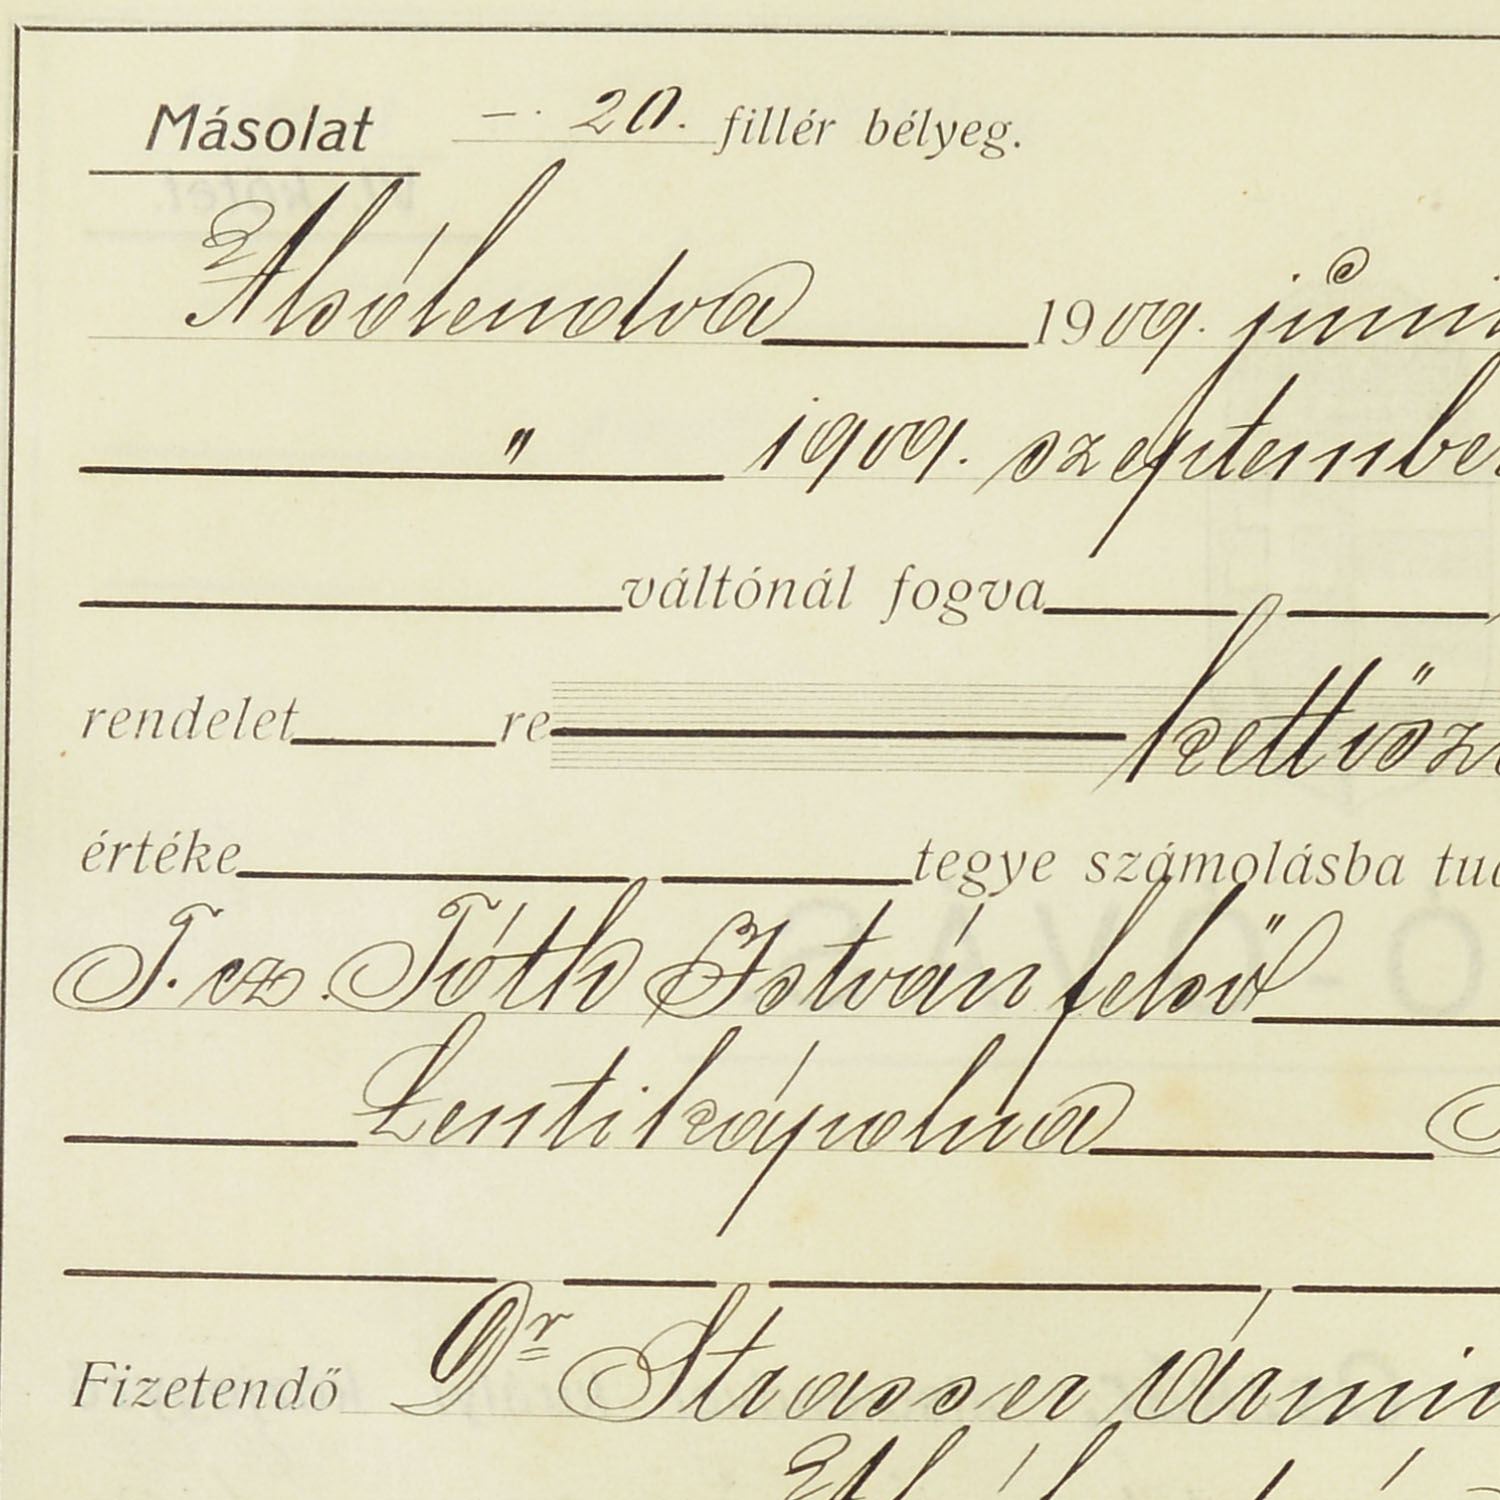 Másolat — . 20. fillér bélyeg.
Alsólendva 1909. júni
" 1909. szeptember
váltónál fogva
rendelet re kettősz
értéke tegye számolásba tud
T. cz. Tóth István felső
Lentikápolna
Fizetendő Dr Strasser Ármin